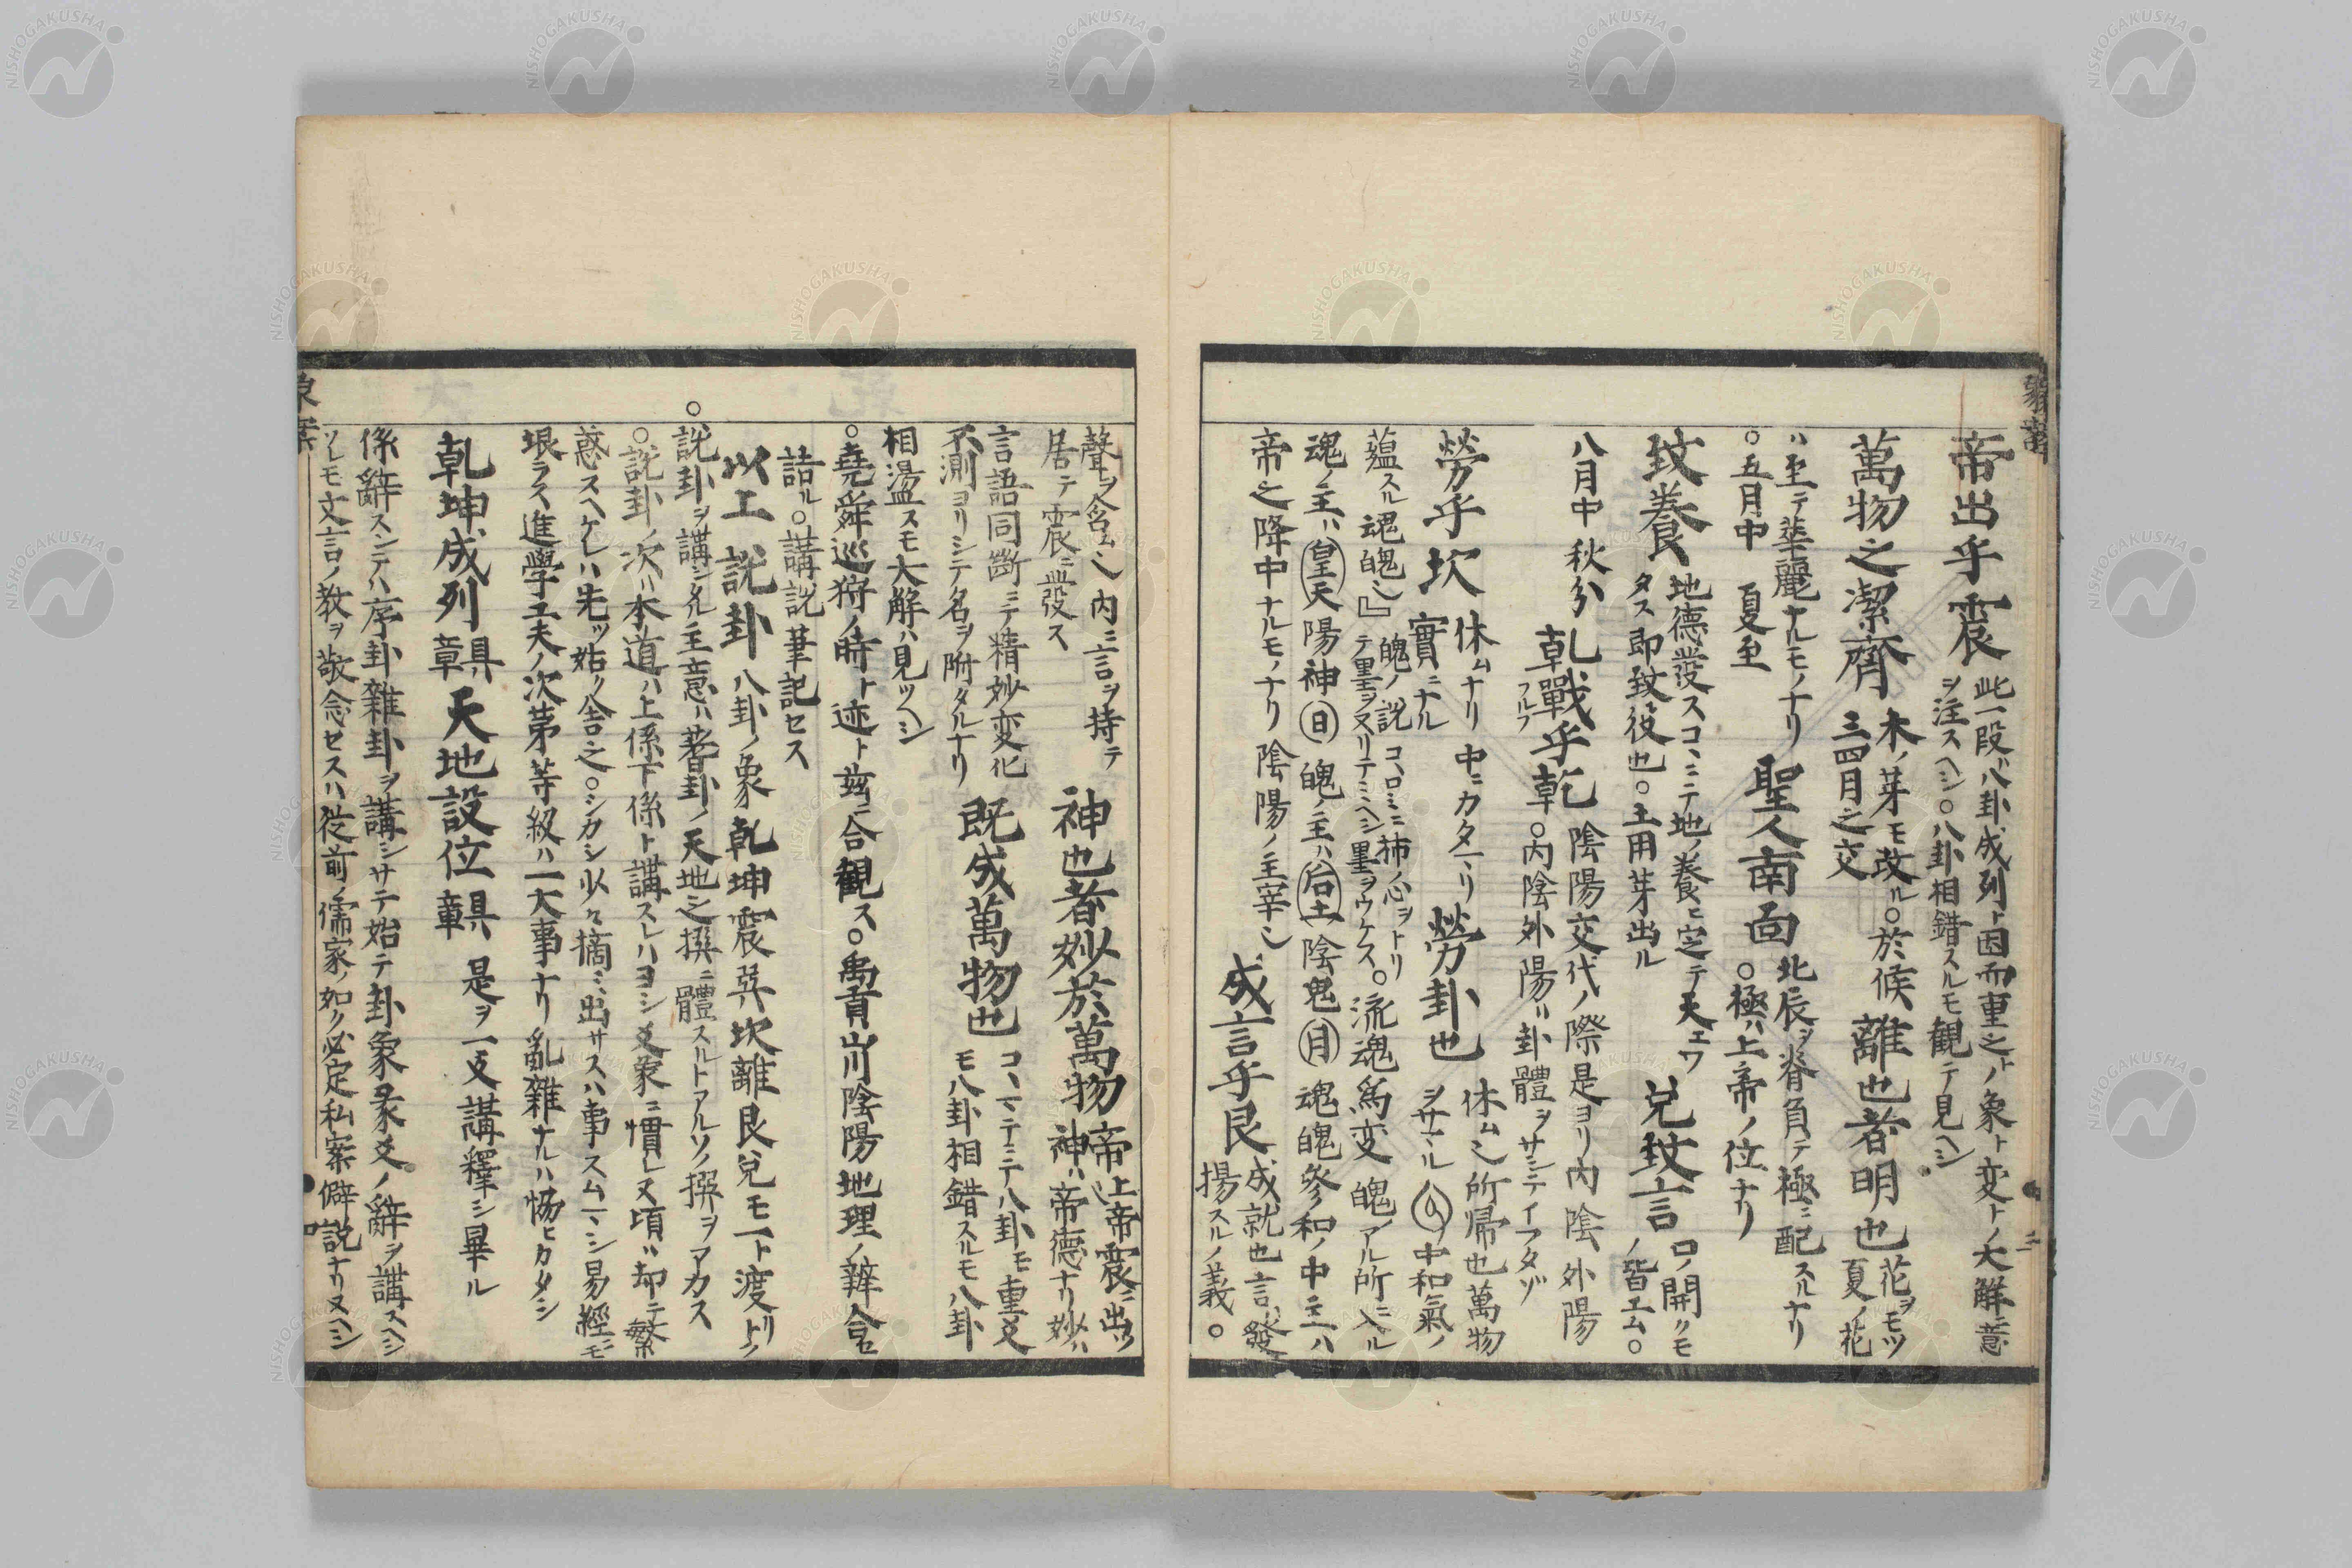 帝出乎震 此一段ハ八卦成列ト因而重之トノ象ト変トノ大解ニ意
ヲ注スヘシ○八卦相錯スルモ観テ見ヘシ
萬物之潔齊 木ノ芽モ改ル○於候
三四月之交
離也者明也 花ヲモツ
夏ノ花
ハ至テ華麗ナルモノナリ
○五月中 夏至
聖人南面 北辰ヲ脊負テ極ニ配スルナリ
○極ハ上帝ノ位ナリ
致養 地徳發スコヽニテ地ノ養ヒ定テ天エワ
タス即致役也○土用芽出ル
兌致言 口ノ開クモ
ノ皆エム○
八月中 秋分
乹戰乎乾 陰陽交代ノ際是ヨリ内陰外陽
フルフ
○内陰外陽ハ卦體ヲサシテイフタゾ
勞乎坎 休ムナリ 中ニカタマリ
實ニナル
勞卦也 休ム也所帰也萬物
ヲサマル 中和氣ノ
蘊スル魂魄也』 魄ノ説 コヽロミニ柿ノ心ヲトリ
テ墨ヲヌリテミヘシ墨ヲウケス○流魂為変 魄ノアル所ニ入ル
魂ノ主ハ皇天陽神日 魄ノ主ハ后土陰鬼月 魂魄參和ノ中主ハ
帝之降中ナルモノナリ 陰陽ノ主宰也
成言乎艮 成就也言ハ發
揚スルノ義○
聲ヲ含ム也内ニ言ヲ持テ
居テ震ニ發ス
神也者妙於萬物 帝 上帝震ニ出ツ
神ハ帝德ナリ妙ハ
言語同斷ニテ精妙変化
不測ヨリシテ名ヲ附タルナリ
既成萬物也 コヽマテニテ八卦モ重爻
モ八卦相錯スルモ八卦
相盪スモ大解ハ見ツヘシ
○堯舜巡狩ノ時ト迹ト茲ニ合観ス○禹貢山川陰陽地理ノ辨合セ
詰ル○講説筆記セス
以上説卦 八卦ノ象乾坤震巽坎離艮兌モ一ト渡リトノ
○説卦ヲ講シタル主意ハ蓍卦ノ天地之撰ニ體スルトアルソノ撰ヲアカス
○説卦ノ次ハ本道ハ上係下係ト講スレハヨシ爻象ニ慣レヌ頃ハ却テ繁
惑スヘケレハ先ツ姑ク舎之○シカシ少々摘ミ出サスハ事スムマシ易經ニモ
垠ラス進學工夫ノ次第等級ハ一大事ナリ亂雜ナルハ惱ヒカタシ
乾坤成列 具章 天地設位 具章 是ヲ一支講釋シ畢ル
係辭スンテハ序卦雜卦ヲ講シサテ始テ卦象彖爻ノ辭ヲ講スヘシ
ソレモ文言ノ教ヲ敬念セスハ従前ノ儒家ノ如ク必定私案僻説ナリヌヘシ